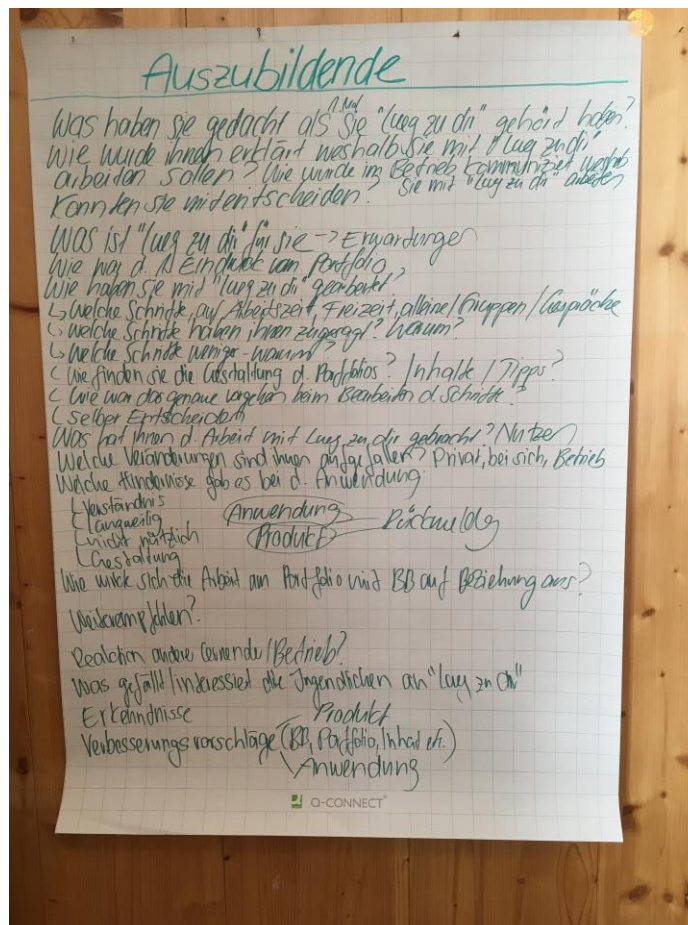 Auszubildende
1. Mal
Was haben sie gedacht als sie "lueg zu dir" gehört haben?
Wie wurde ihnen erklärt weshalb sie mit "lueg zu dir"
arbeiten sollen? Wie wurde im Betrieb kommuniziert weshalb
Konnten sie mitentscheiden? sie mit "lueg zu dir" arbeiten
Was ist "lueg zu dir" für sie -> Erwartungen
Wie war d. 1. Eindruck vom Portfolio
Wie haben sie mit "lueg zu dir" gearbeitet?
↳ Welche Schritte, auf Arbeitszeit, Freizeit, alleine / Gruppen / Gespräche
↳ Welche Schritte haben ihnen zugesagt? Warum?
↳ Welche Schritte weniger - warum?
↳ Wie finden sie die Gestaltung d. Portfolios? / Inhalte / Tipps?
↳ Wie war das genaue vorgehen beim Bearbeiten d. Schritte?
↳ Selber Entscheiden
Was hat ihnen d. Arbeit mit lueg zu dir gebracht? Nutzen
Welche Veränderungen sind ihnen aufgefallen? Privat, bei sich, Betrieb
Welche Hindernisse gab es bei d. Anwendung
↳ Verständnis
↳ langweilig
↳ nicht nützlich
↳ Gestaltung
Anwendung
Produkt
Rückmeldg
Wie wirkt sich die Arbeit am Portfolio mit BB auf Beziehung aus?
Weiterempfehlen?
Reaktion andere Lernende / Betrieb?
Was gefällt / interessiert die Jugendlichen an "lueg zu dir"
Erkenntnisse
Produkt
Verbesserungsvorschläge (BB, Portfolio, Inhalt etc.)
Anwendung
Q-CONNECT